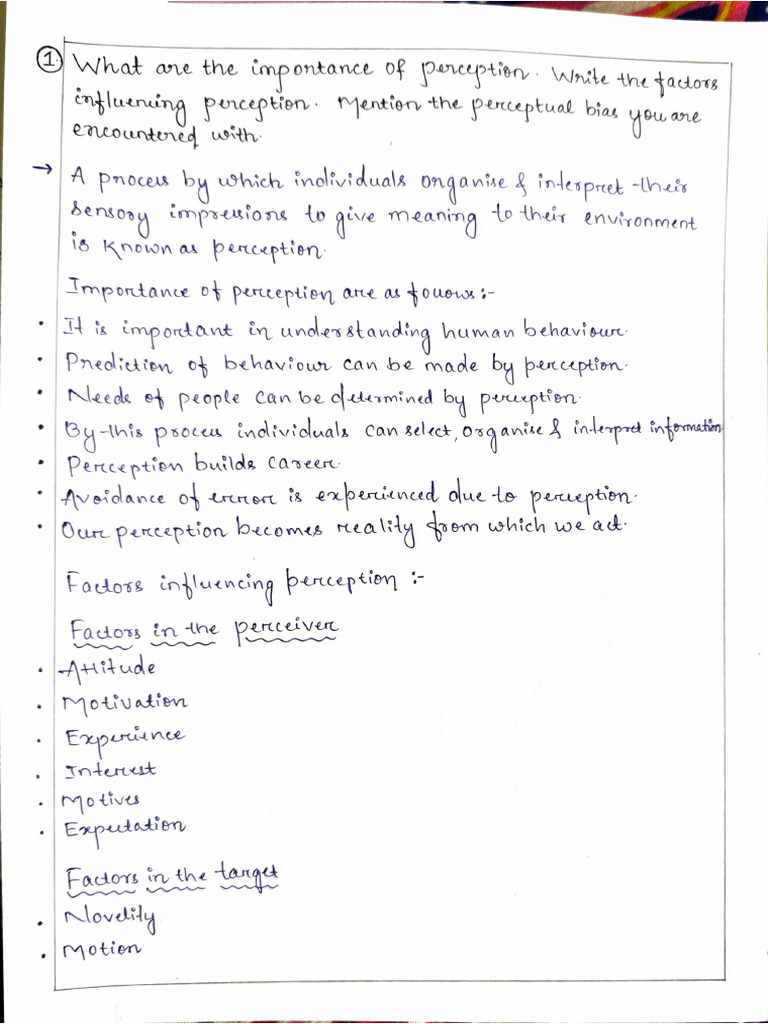 ① What are the importance of perception. Write the factors
influencing perception. Mention the perceptual bias you are
encountered with.
→ A process by which individuals organise & interpret their
sensory impressions to give meaning to their environment
is known as perception.
Importance of perception are as follows:-
• It is important in understanding human behaviour.
• Prediction of behaviour can be made by perception.
• Needs of people can be determined by perception.
• By this process individuals can select, organise & interpret information
• Perception builds career.
• Avoidance of error is experienced due to perception.
• Our perception becomes reality from which we act.
Factors influencing perception :-
Factors in the perceiver
• Attitude
• Motivation
• Experience
• Interest
• Motives
• Expectation
Factors in the target
• Novelity
• Motion